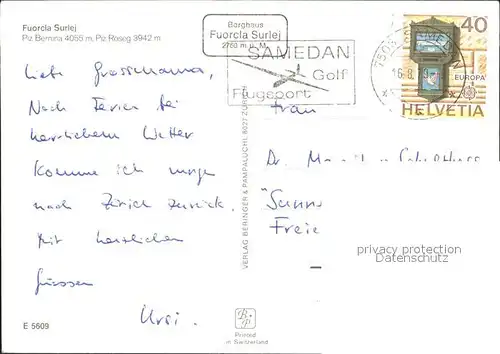 Fuorcla Surlej
Piz Bernina 4055 m, Piz Roseg 3942 m
Berghaus
Fuorcla Surlej
2760 m ü. M.
SAMEDAN
Golf
Flugsport
7503 SAMEDAN
16.8.
40
EUROPA
HELVETIA
Liebe Grossmama,
Nach Ferien bei
herrlichem Wetter
komme ich morgen
nach Zürich zurück.
Mit herzlichen
Grüssen
Ursi.
Frau
Dr. M
"Sunn
Freie
VERLAG BERINGER & PAMPALUCHI, 8027 ZÜRICH
privacy protection
Datenschutz
E 5609
Printed
in Switzerland